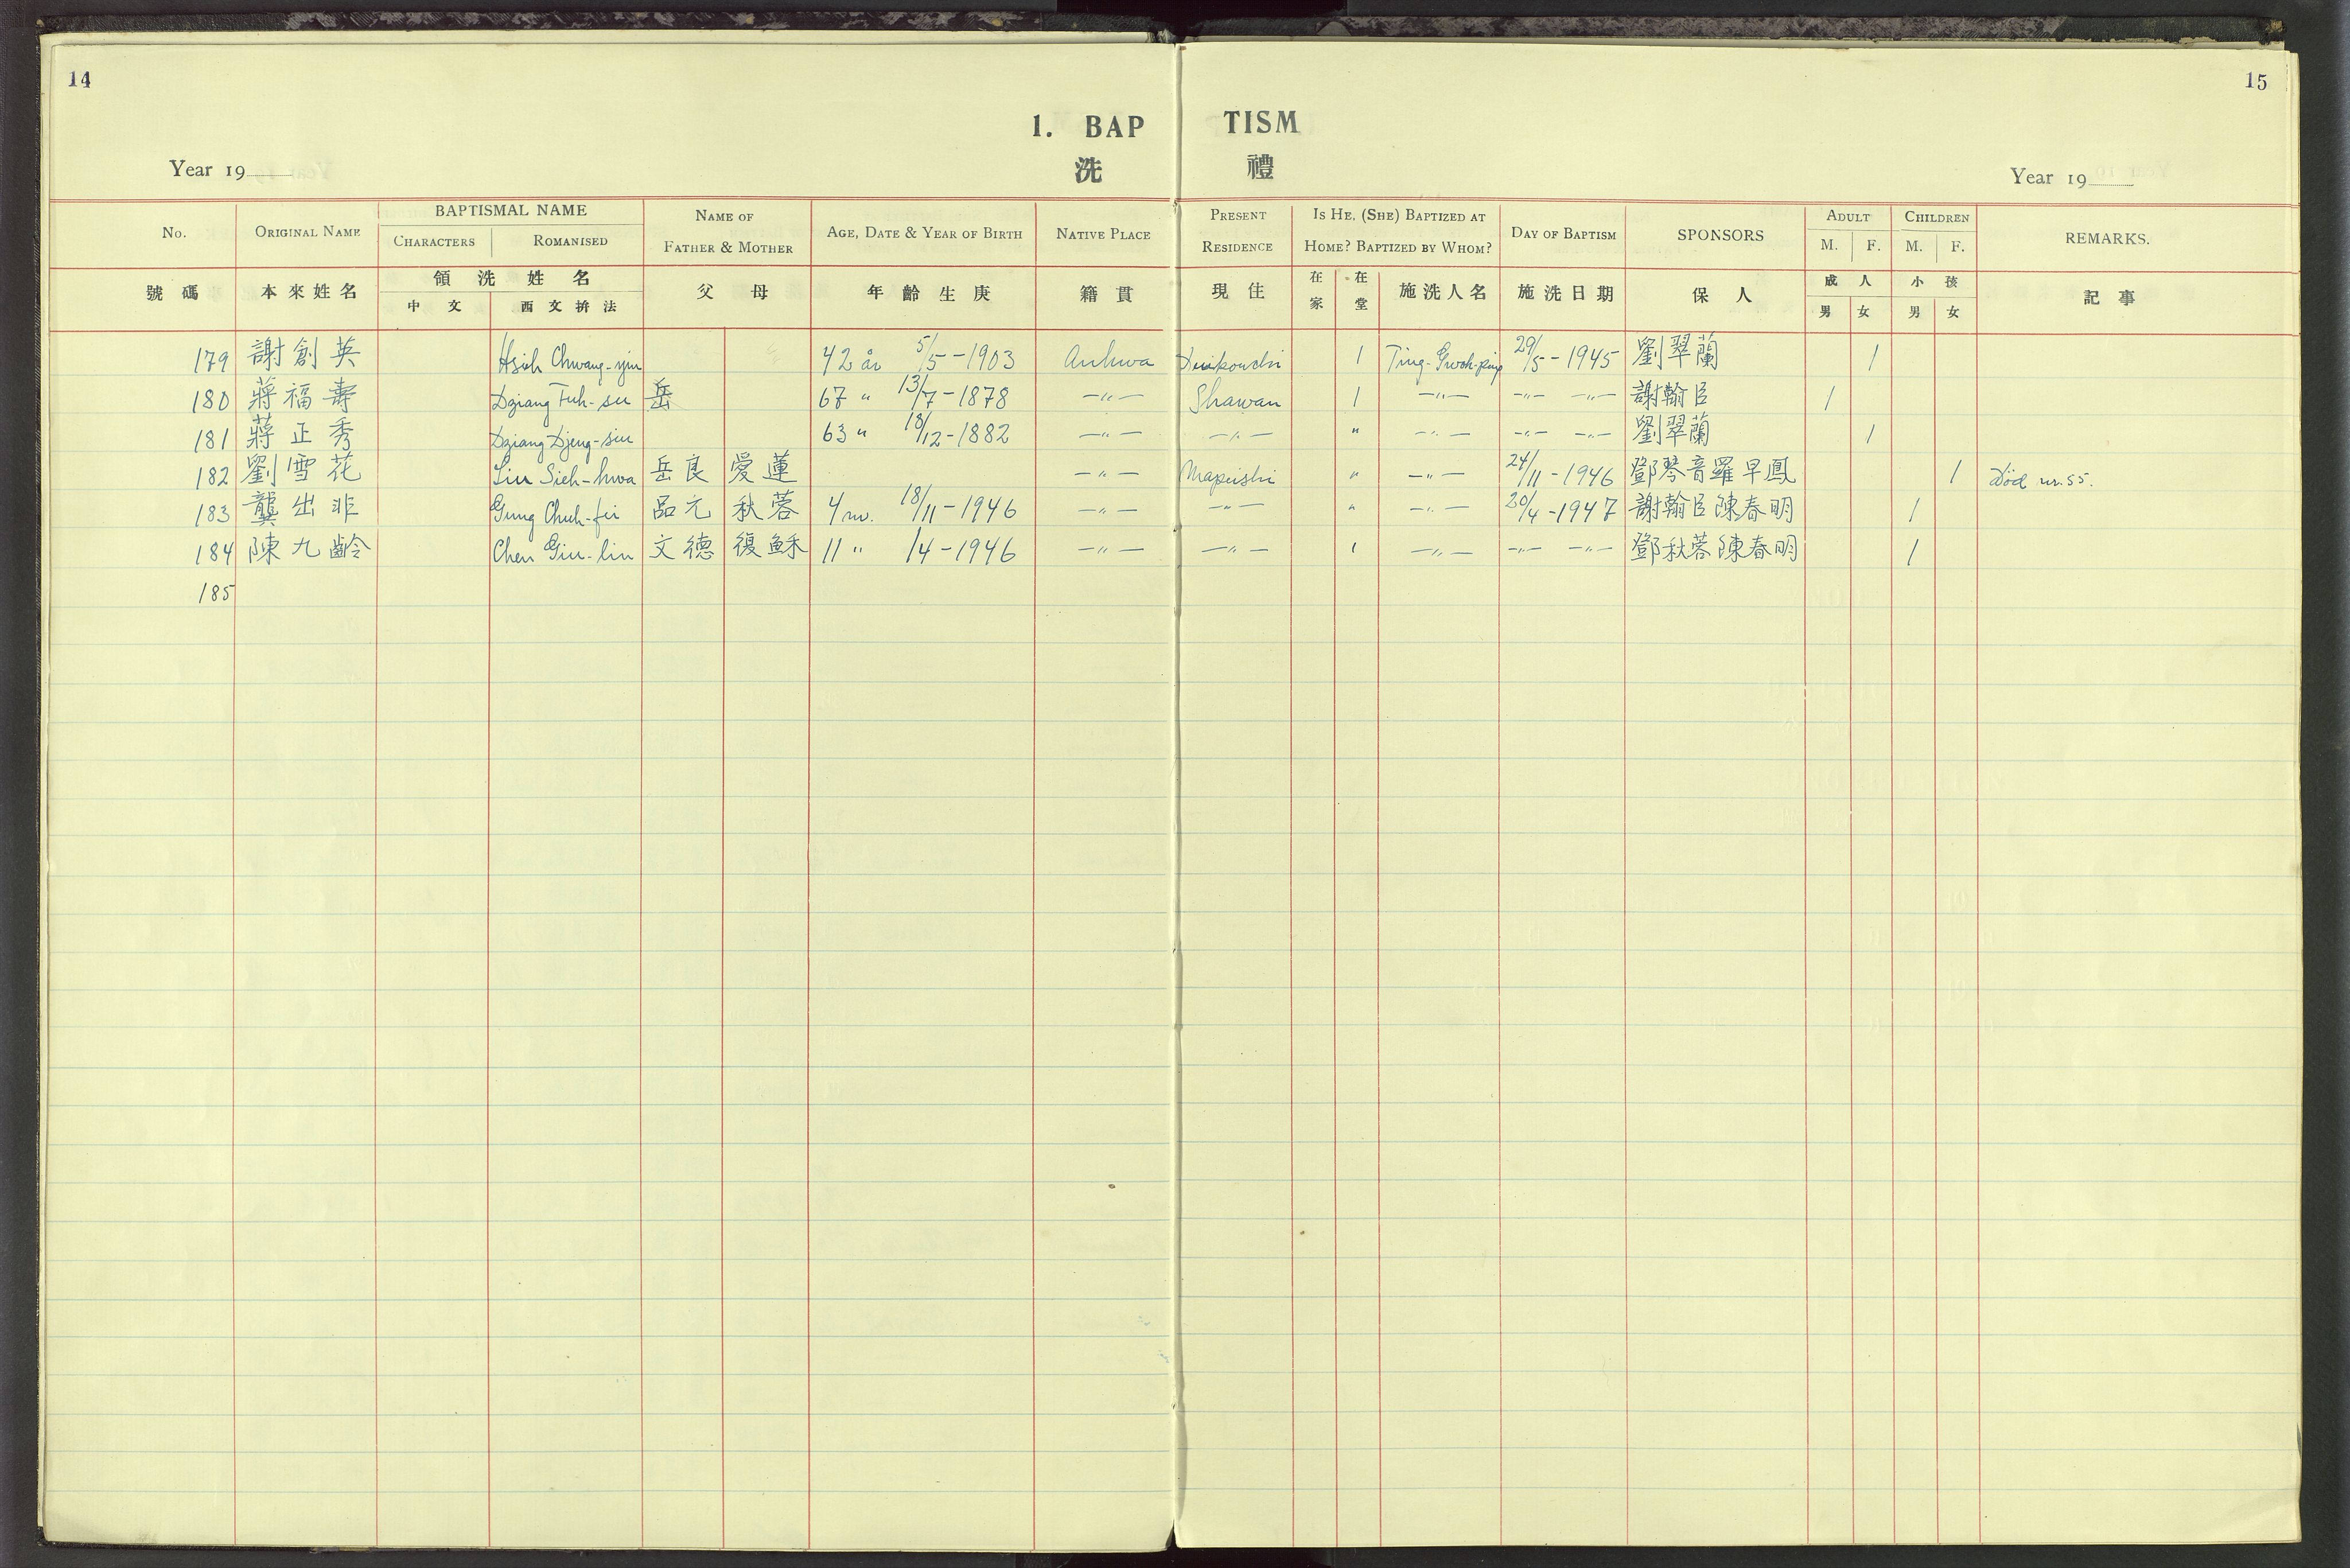 14
15
1. BAP TISM
洗 禮
Year 19
Year 19
No. ORIGINAL NAME BAPTISMAL NAME NAME OF FATHER & MOTHER AGE, DATE & YEAR OF BIRTH NATIVE PLACE PRESENT RESIDENCE IS HE, (SHE) BAPTIZED AT HOME? BAPTIZED BY WHOM? DAY OF BAPTISM SPONSORS ADULT CHILDREN REMARKS.
CHARACTERS ROMANISED M. F. M. F.
號碼 本來姓名 領洗姓名 父 母 年齡生庚 籍貫 現住 在家 在堂 施洗人名 施洗日期 保人 成人 小孩 記事
中文 西文拚法 男 女 男 女
179 謝創英 Hsieh Chwang-yin 42 år 5/5-1903 Anhwa 1 Ting-Gwoh-ping 29/5-1945 劉翠蘭 1
180 蔣福壽 Dziang Fuh-su 岳 67 " 13/7-1878 -"- Shawan 1 -"- -"- -"- 謝翰臣 1
181 蔣正秀 Dziang Djeng-siu 63 " 18/12-1882 -"- -"- " -"- -"- -"- 劉翠蘭 1
182 劉雪花 Liu Sieh-hwa 岳良 愛蓮 -"- Mapeishi " -"- 24/11-1946 鄧琴音羅早鳳 1 Död nr. 55.
183 龔出非 Gung Chuh-fei 品元 秋蓉 4 m. 18/11-1946 -"- -"- " -"- 20/4-1947 謝翰臣陳春明 1
184 陳九齡 Chen Giu-lin 文德 復穌 11 " 1/4-1946 -"- -"- 1 -"- -"- -"- 鄧秋蓉陳春明 1
185